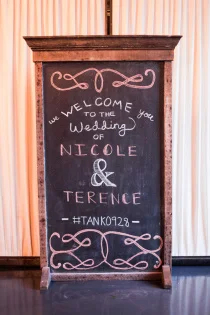 we WELCOME you
TO THE
Wedding
OF
NICOLE
&
TERENCE
- #TANK0928 -